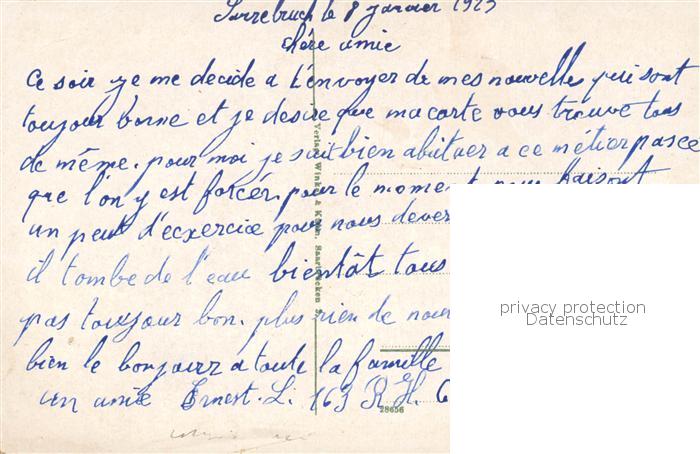 Sarrebruck le 8 janvier 1923
chere amie
Ce soir je me decide a t'envoyer de mes nouvelle qui sont
toujour bonne et je desire que ma carte vous trouve tous
de même. pour moi je suit bien abituer a ce métier pasce
que l'on y est forcér. pour le moment nous faisont
un peut d'ecxercice pour nous
il tombe de l'eau bientôt tous
pas toujour bon. plus rien de
bien le bonjourr a toute la famille
un amie Ernest. L. 163 R. H.
Verlag Winkel & Saarbrücken 3.
28656
privacy protection
Datenschutz